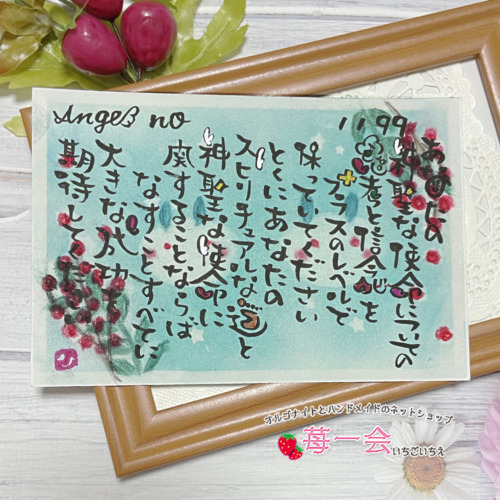 Angel no
1199
あなたの
神聖な使命についての
随意と信念を
プラスのレベルで
保っていてください
とくにあなたの
スピリチュアルな道と
神聖な使命に
関することならば
なすことすべてに
大きな成功を
期待してください
オルゴナイトとハンドメイドのネットショップ
苺一会
いちごいちえ